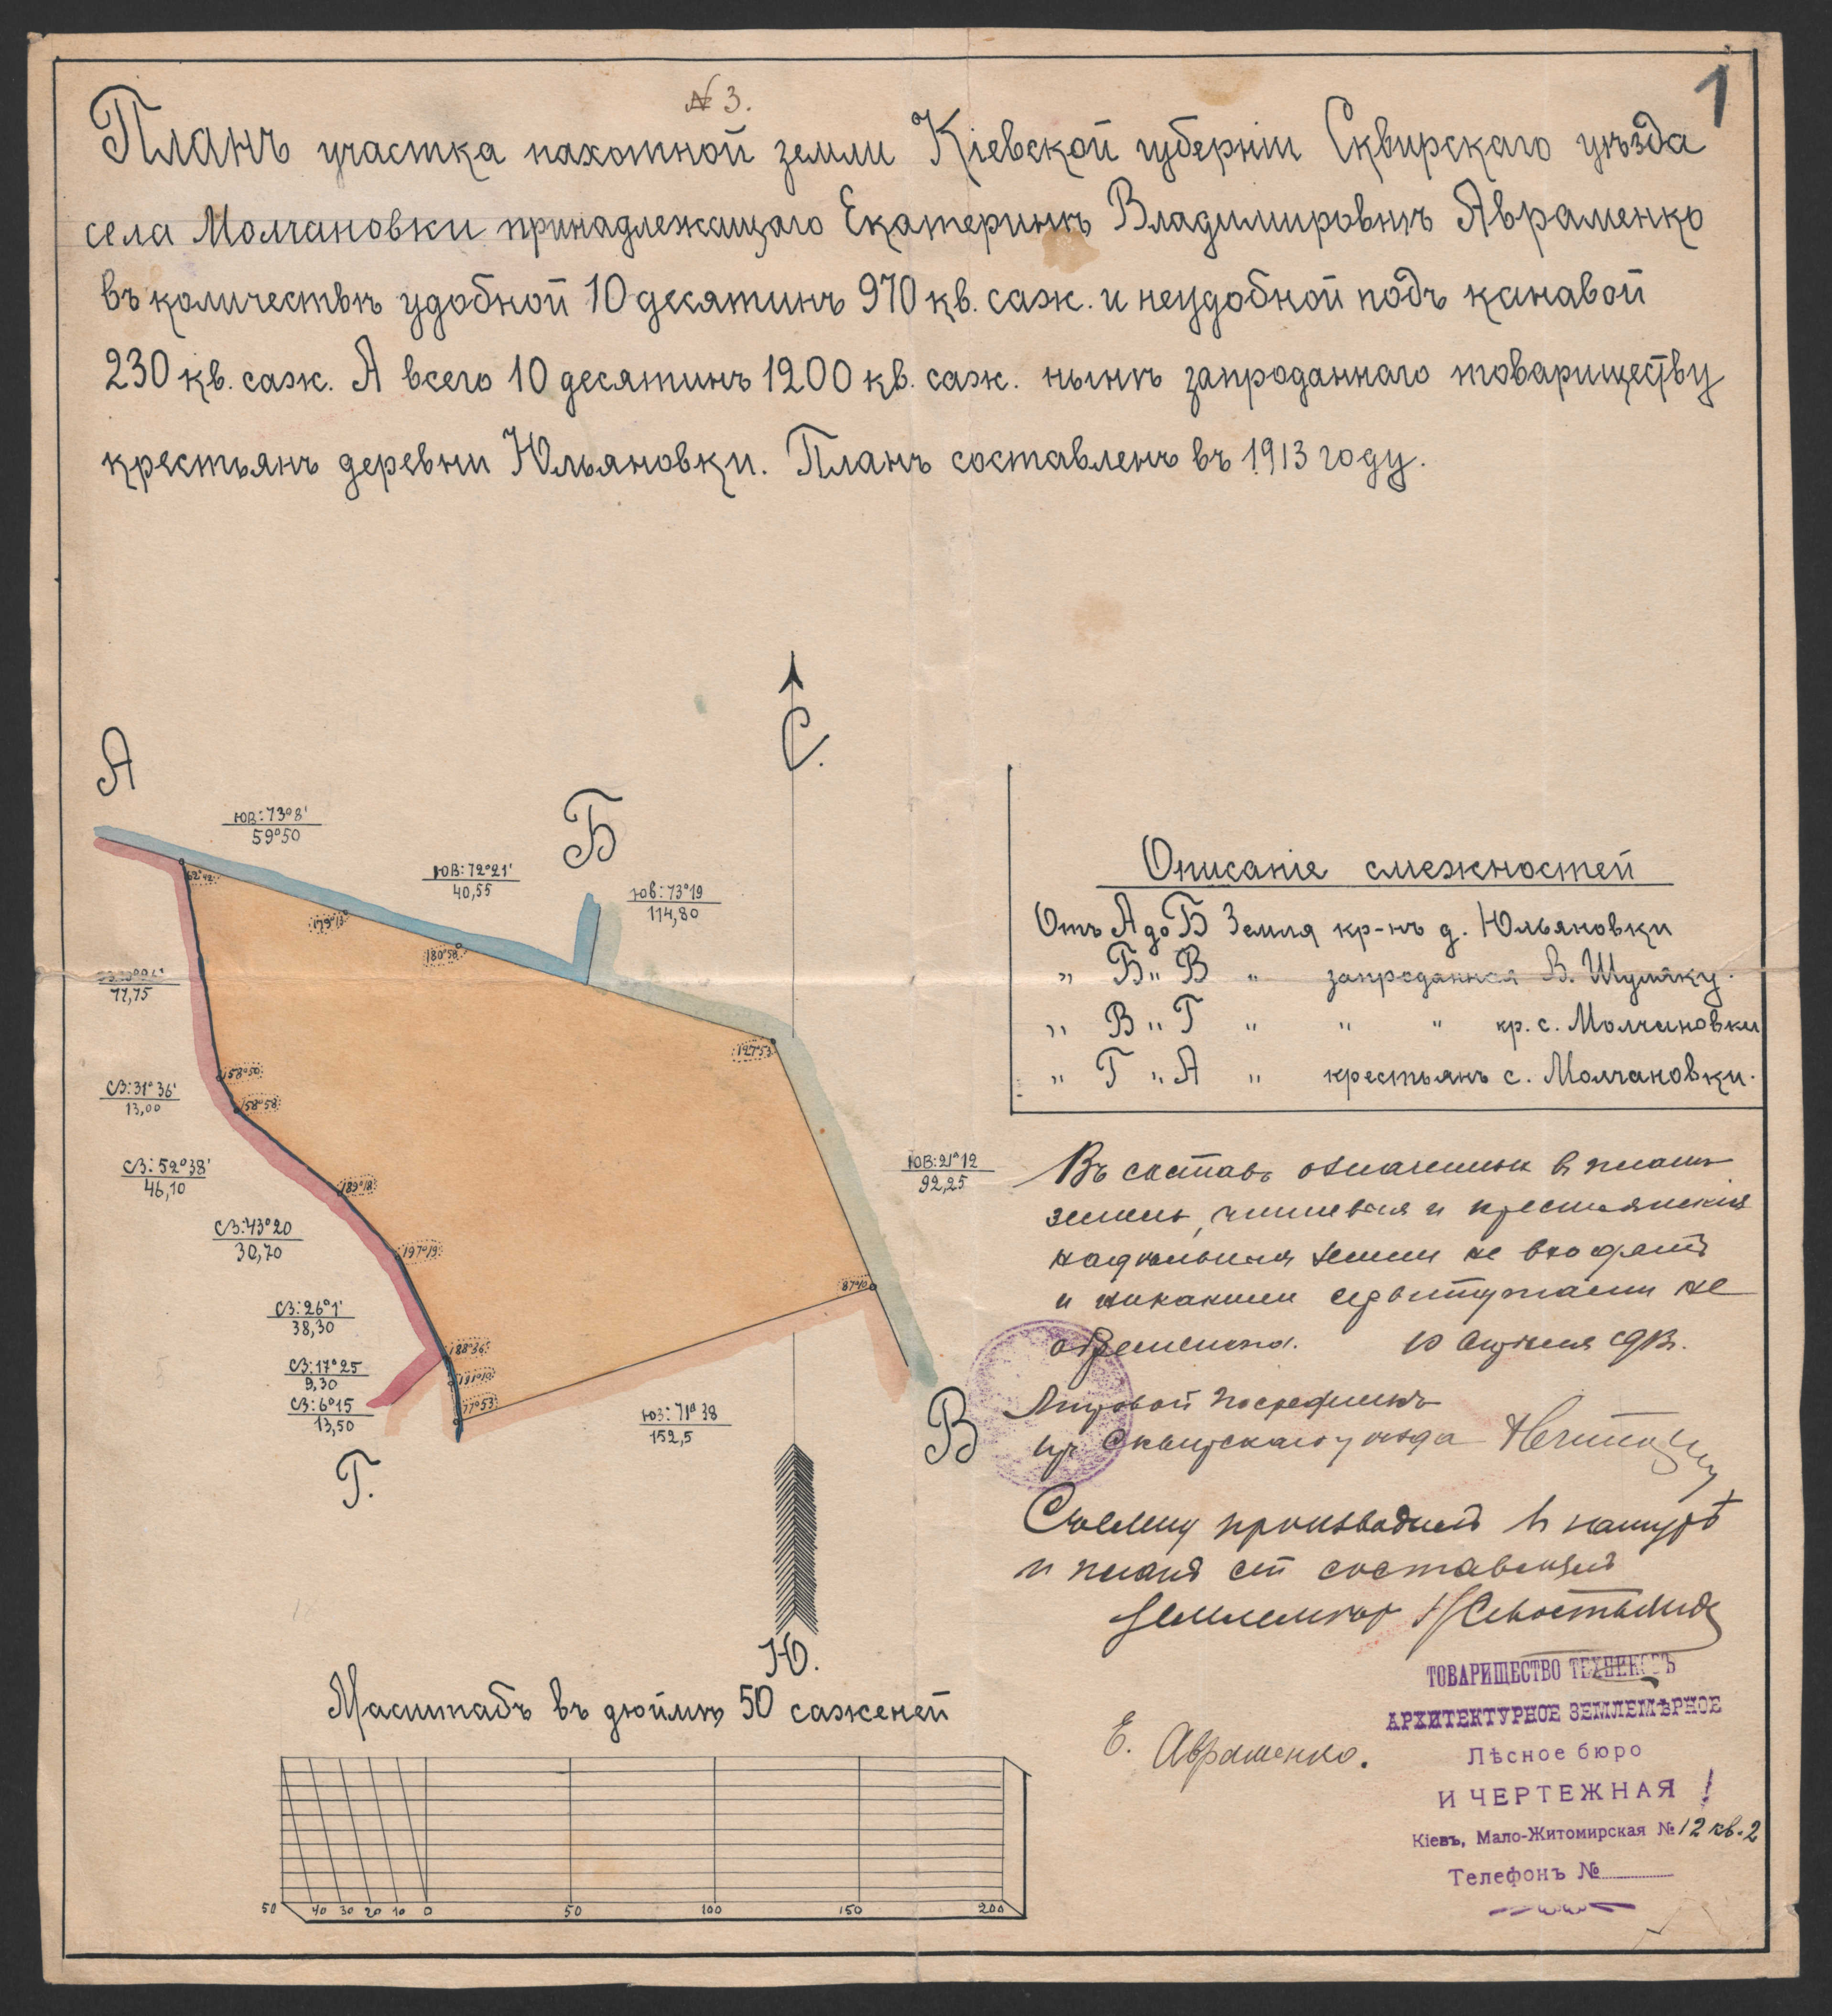 № 3.
1
Планъ участка пахотной земли Кіевской губерніи Сквирскаго уѣзда
села Молчановки принадлежащаго Екатеринѣ Владимировнѣ Авраменко
въ количествѣ удобной 10 десятинъ 970 кв. саж. и неудобной подъ канавой
230 кв. саж. А всего 10 десятинъ 1200 кв. саж. нынѣ запроданнаго товариществу
крестьянъ деревни Юльяновки. Планъ составленъ въ 1913 году.
С.
А
Б
ЮВ: 73°8'
59°50
ЮВ: 72°21'
40,55
ЮВ: 73°19
114,80
62°42'
179°13'
180°58'
127°53'
77,75
158°50'
158°58'
СЗ: 31°36'
13,00
СЗ: 52°38'
46,10
189°18'
СЗ: 43°20
30,70
197°19'
ЮВ: 21°12
92,25
87°10'
СЗ: 26°1'
38,30
188°36'
СЗ: 17°25
9,30
191°10'
СЗ: 6°15
13,50
77°53'
ЮЗ: 71°38
152,5
В
Г.
Ю.
Описаніе смежностей
Отъ А до Б Земля кр-нъ д. Юльяновки
„ Б „ В „ запроданная В. Шуляку.
„ В „ Г „ „ „ кр. с. Молчановки
„ Г „ А „ крестьянъ с. Молчановки.
Въ составъ означенныхъ въ планѣ
земель, чиншевыя и крестьянскія
надѣльныя земли не входятъ
и никакими сервитутами не
обременена. 10 Апрѣля 1913.
Мировой Посредникъ
Сквирскаго уѣзда
Съемку производилъ въ натурѣ
и планъ сей составлялъ
Землемѣръ
Е. Авраменко.
ТОВАРИЩЕСТВО ТЕХНИКОВЪ
АРХИТЕКТУРНОЕ ЗЕМЛЕМѢРНОЕ
Лѣсное бюро
И ЧЕРТЕЖНАЯ !
Кіевъ, Мало-Житомирская № 12 кв. 2
Телефонъ №
Масштабъ въ дюймѣ 50 саженей
50 40 30 20 10 0 50 100 150 200